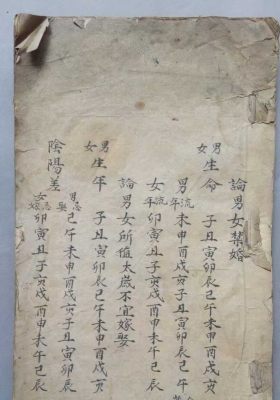 論男女禁婚
男女生命 子丑寅卯辰巳午未申酉戌亥
男流年 未申酉戌亥子丑寅卯辰巳
女流年 卯寅丑子亥戌酉申未午巳辰
論男女所值太歲不宜嫁娶
男女生年 子丑寅卯辰巳午未申酉戌亥
男忌娶 巳午未申酉戌亥子丑寅卯辰
陰陽差
女忌嫁 卯寅丑子亥戌酉申未午巳辰